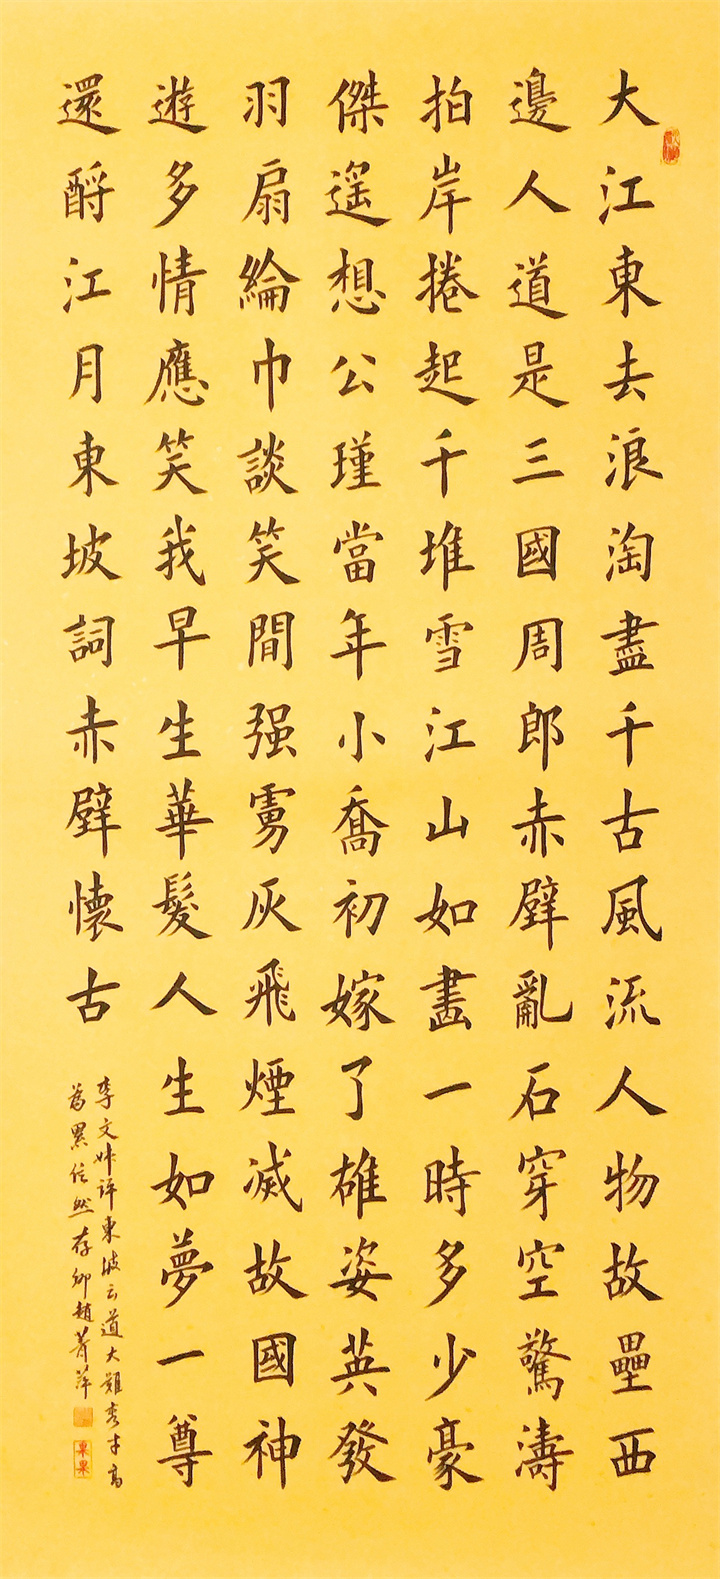 大江東去浪淘盡千古風流人物故壘西
邊人道是三國周郎赤壁亂石穿空驚濤
拍岸捲起千堆雪江山如畫一時多少豪
傑遥想公瑾當年小喬初嫁了雄姿英發
羽扇綸巾談笑間强雩灰飛煙滅故國神
遊多情應笑我早生華髮人生如夢一尊
還酹江月東坡詞赤壁懷古
李文叔評東坡云道大難容才高
為累信然存卿趙菁萍